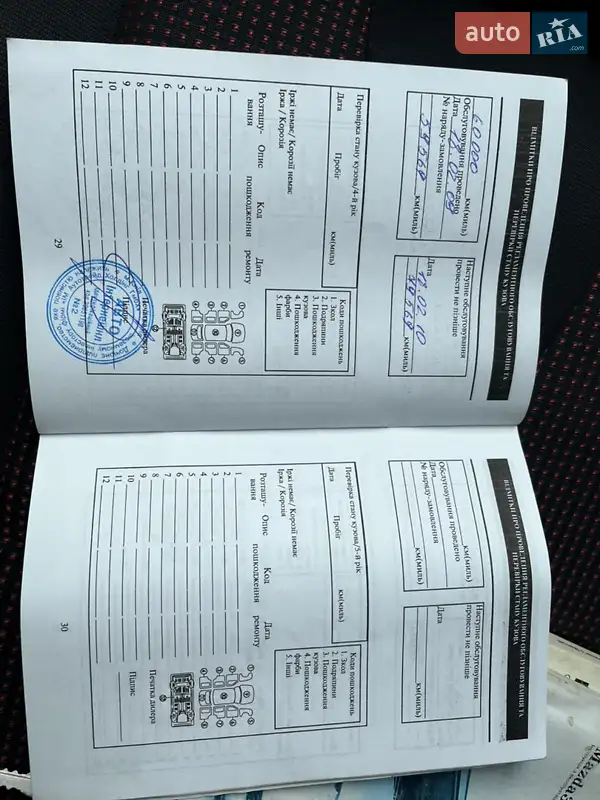 auto RIA.com
ВІДМІТКИ ПРО ПРОВЕДЕННЯ РЕГЛАМЕНТНОГО ОБСЛУГОВУВАННЯ ТА
ПЕРЕВІРКИ СТАНУ КУЗОВА
60 000 км(миль)
Обслуговування проведено
Дата
№ наряду-замовлення
км(миль)
Наступне обслуговування
провести не пізніше
Дата
км(миль)
Перевірка стану кузова/4-й рік
Дата Пробіг км(миль)
Іржі немає/ Корозії немає
Іржа / Корозія
Розташу- Опис Код Дата
вання пошкодження ремонту
1
2
3
4
5
6
7
8
9
10
11
12
Коди пошкоджень
1. Скол
2. Подряпини
3. Пошкодження
кузова
4. Пошкодження
фарби
5. Інші
29
ВІДМІТКИ ПРО ПРОВЕДЕННЯ РЕГЛАМЕНТНОГО ОБСЛУГОВУВАННЯ ТА
ПЕРЕВІРКИ СТАНУ КУЗОВА
км(миль)
Обслуговування проведено
Дата
№ наряду-замовлення
км(миль)
Наступне обслуговування
провести не пізніше
Дата
км(миль)
Перевірка стану кузова/5-й рік
Дата Пробіг км(миль)
Іржі немає/ Корозії немає
Іржа / Корозія
Розташу- Опис Код Дата
вання пошкодження ремонту
1
2
3
4
5
6
7
8
9
10
11
12
Коди пошкоджень
1. Скол
2. Подряпини
3. Пошкодження
кузова
4. Пошкодження
фарби
5. Інші
Печатка дилера
Підпис
30
Mazda